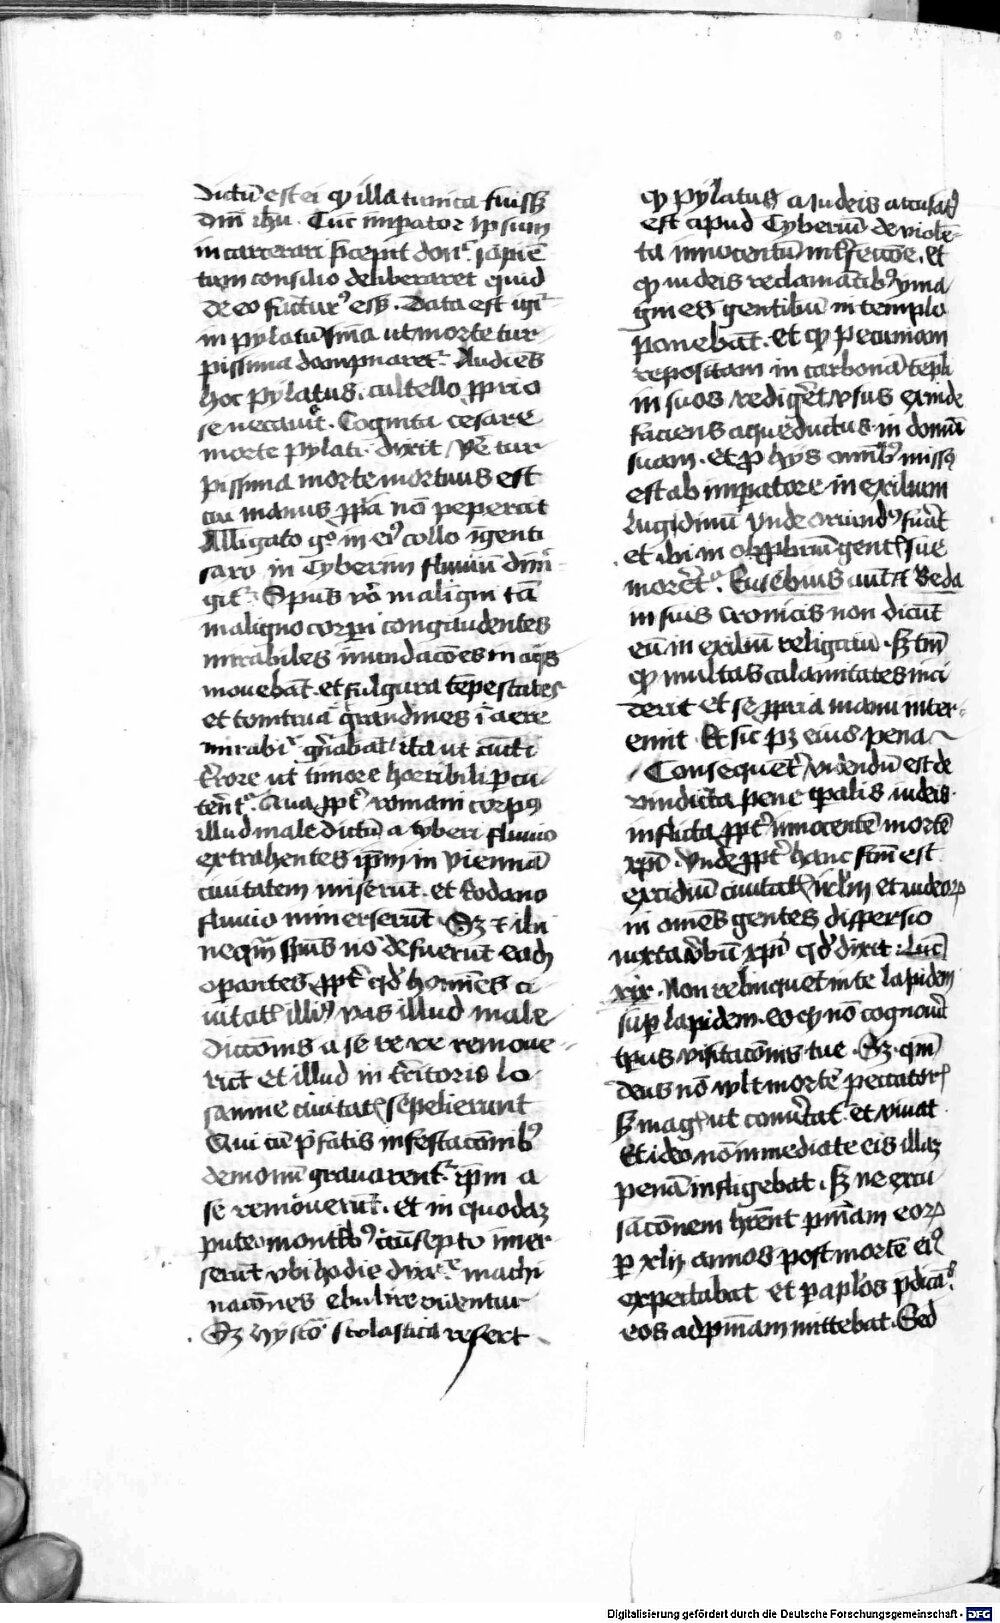 dictū est ei ꝙ illa tunica fuiss
dn̄i ih̄u · Tūc imperator ipsum
in carcerari p̄cepit donec sapiē
tum consilio deliberaret quid
de eo factur' eēt · Data est igit'
in pylatū sn̄ia ut morte tur
pissima dampnaret' · Audiēs
hoc pylatus · cultello ꝓprio
se necavit · Cognita cesare
morte pylati dixit / Ve͛ tur
pissima morte mortuus est
cui manus ꝓp̄a nō pepercit
Alligato g° in ei' collo īgenti
saxo in Tyberim fluuiū dimer
git' · Sp̄us v͛o maligni tā
maligno corp̄i congaudentes
mirabiles inundac̄ōes in aq̄s
mouebāt · et fulgura tēpestates
et tonitrua grandines ī aere
mirabil' gn̄abāt / ita ut cūcti
t͛rore ut timore horribili percu
terēt' · Qua ꝓpt͛ romani corpus
illud maledictū a tyberi fluuio
extrahentes ip̄m in viennā
ciuitatem miserūt · et Rodano
fluuio inmerserūt · Sꝫ et ibi
neq̄m sp̄us nō defuerūt eadē
operantes ꝓpt͛ qd' homīes ci
uitatis illi' vas illud male
dicc̄ōnis a se remoue
rūt et illud in t͛ritoris lo
sanne ciuitatis sepelierunt
Qui cū p̄fatis infestac̄ōnib'
demonū grauarent' ip̄m a
se remouerūt · et in quodaꝫ
puteo montib' cīcūsepto inmer
serūt vbi hodie machi
nac̄ōnes ebulire videntur
Sꝫ hystoͬ scolastica refert
ꝙ pylatus a iudeis accusatꝰ
est apud Tyberiū de violē
ta innocentū int͛fecc̄ōe · et
ꝙ iudeis reclamātib' yma
gines gentiliū in templo
ponebāt · et ꝙ pecuniam
repositam in carbonā tēpli
in suos redig͛et vsus exinde
faciens aqueductus in domū
suam · et ꝓ hijs om̄ib' missꝰ
est ab imperatore in exilium
Lugdinū vnde oriund' fu͛at
et ibi in obꝓbriū gent' sue
morēt' · Eusebius aūt et Beda
in suis cronicis non dicūt
eū in exiliū religatū · sꝫ tm̄
ꝙ multas calamitates inci
derit et se ꝓpria manu inter
emit · Et sic pꝫ eius pena
Consequent͛ videndū est de
vindicta pene t̄palis iudeis
inflicta ꝓpt͛ innocentē mortē
xp̄i · Vnde ꝓpt͛ hanc sn̄iam est
excidiū ciuitatis ih͛lm et iudeoꝝ
in om̄es gentes disp͛sio
iuxta v͛bū xp̄i qd' dixit · Luc̄
xix · Non relinquet in te lapidem
sup lapidem · eo ꝙ nō cognou͛it
tp̄us visitac̄ōnis tue · Sꝫ qm̄
deus nō vlt mortē peccatoris
sꝫ magis ut conu͛tat et viuat
Et ideo nō inmediate eis illaꝫ
penā infligebat · sꝫ ne excu
sac̄ōnem hr̄ent pn̄iam eoꝝ
per xlij annos post mortē ei'
expectabat et per apl'os p̄dicās
eos ad pn̄iam mittebat · Sed
Digitalisierung gefördert durch die Deutsche Forschungsgemeinschaft - DFG